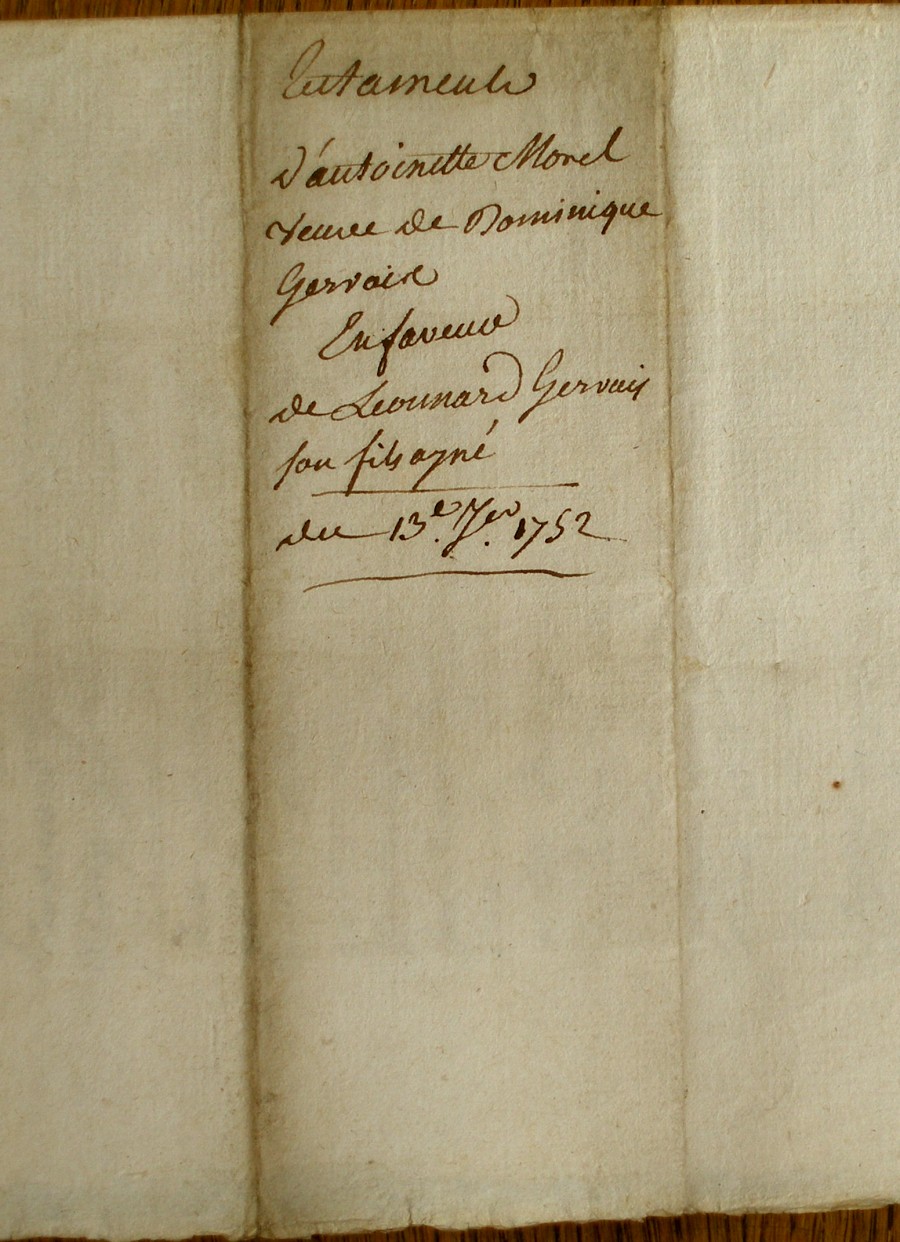 Testament
d'antoinette Morel
veuve de Dominique
Gervais
En faveur
de Leonnard Gervais
son fils ayné
du 13e. 7re. 1752